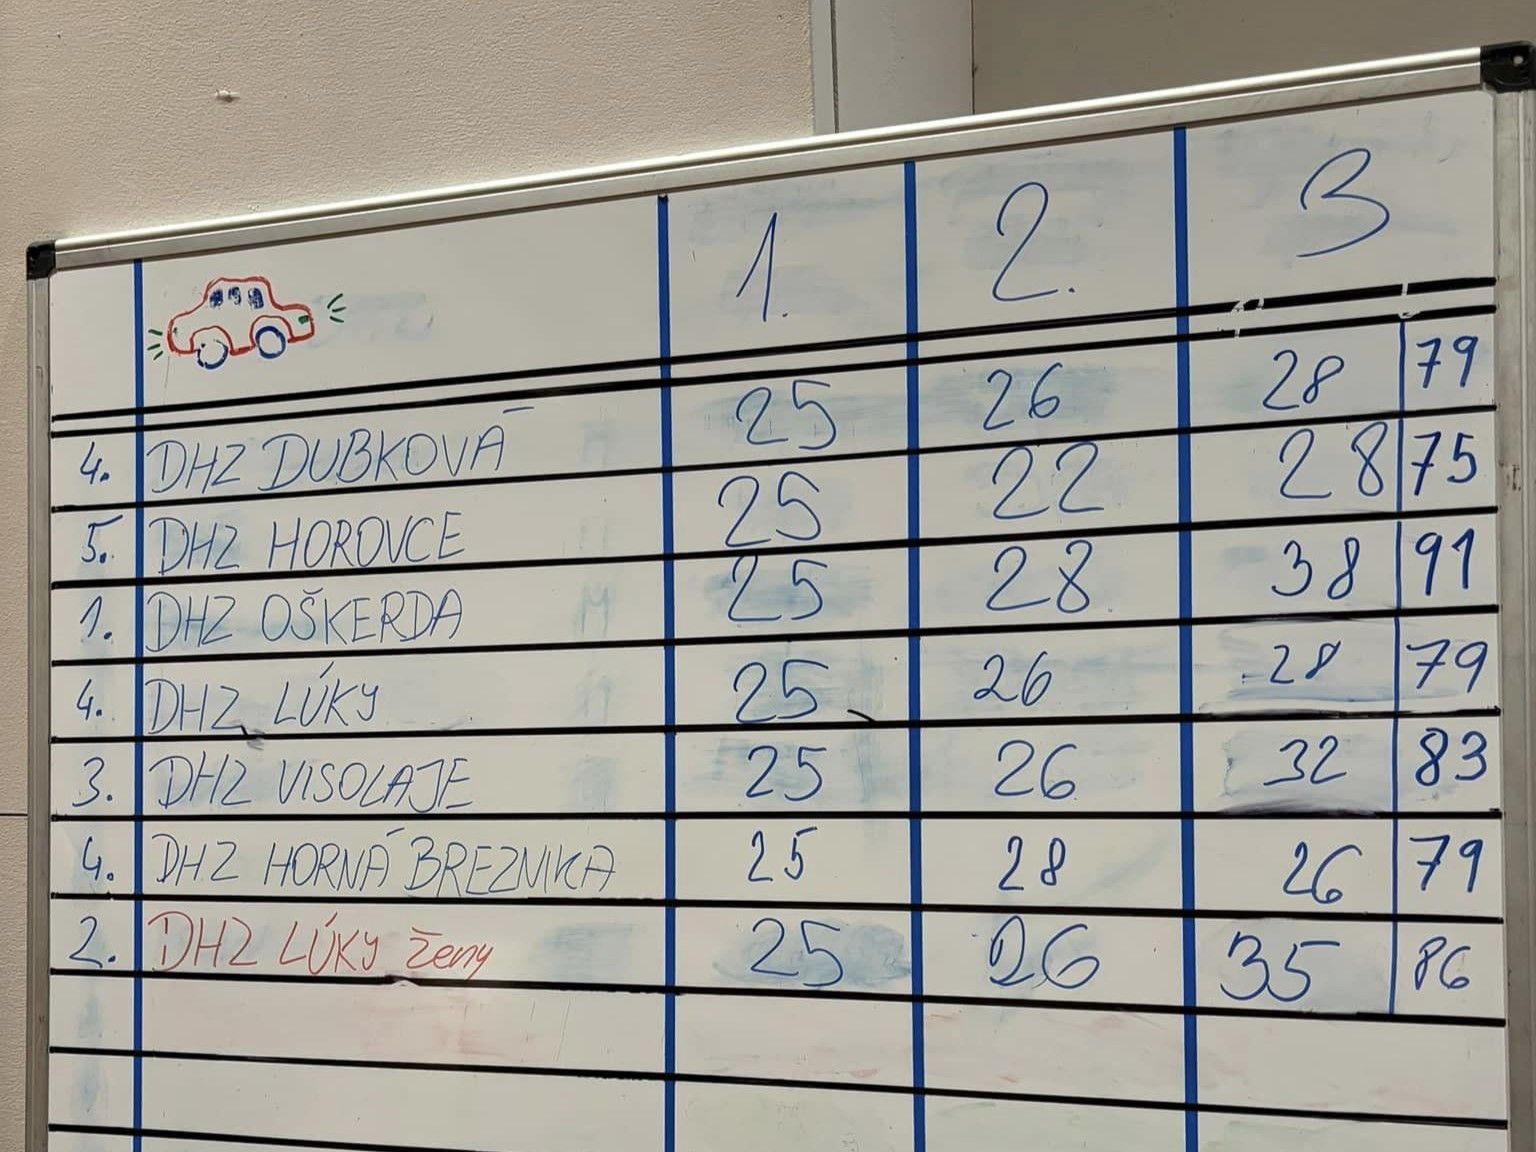 1. 2. 3
4. DHZ DUBKOVÁ 25 26 28 79
5. DHZ HOROVCE 25 22 28 75
1. DHZ OŠKERDA 25 28 38 91
4. DHZ LÚKY 25 26 28 79
3. DHZ VISOLAJE 25 26 32 83
4. DHZ HORNÁ BREZNIKA 25 28 26 79
2. DHZ LÚKY ženy 25 26 35 86